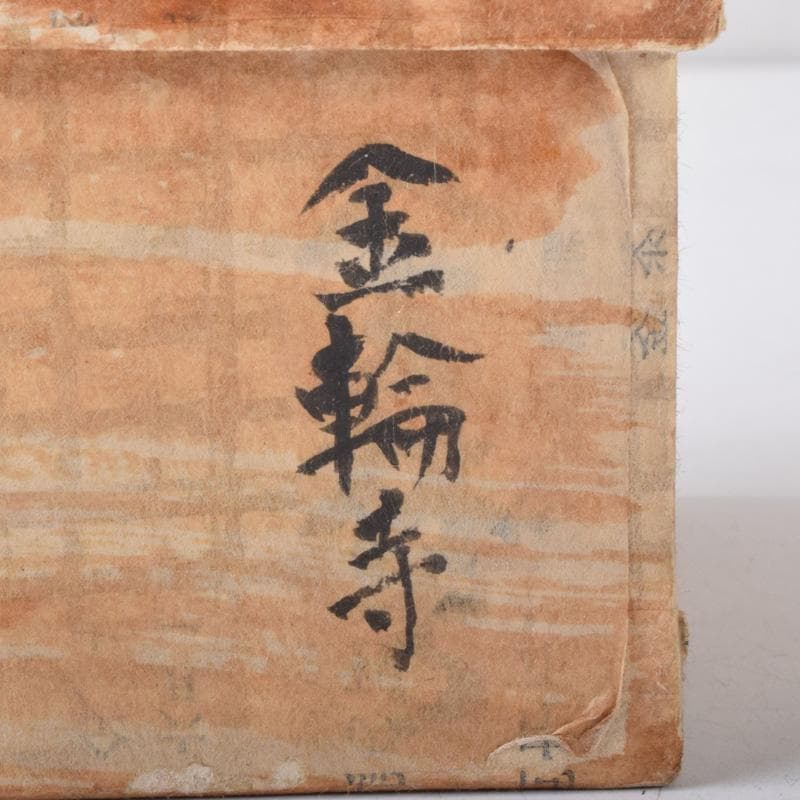 金輪寺